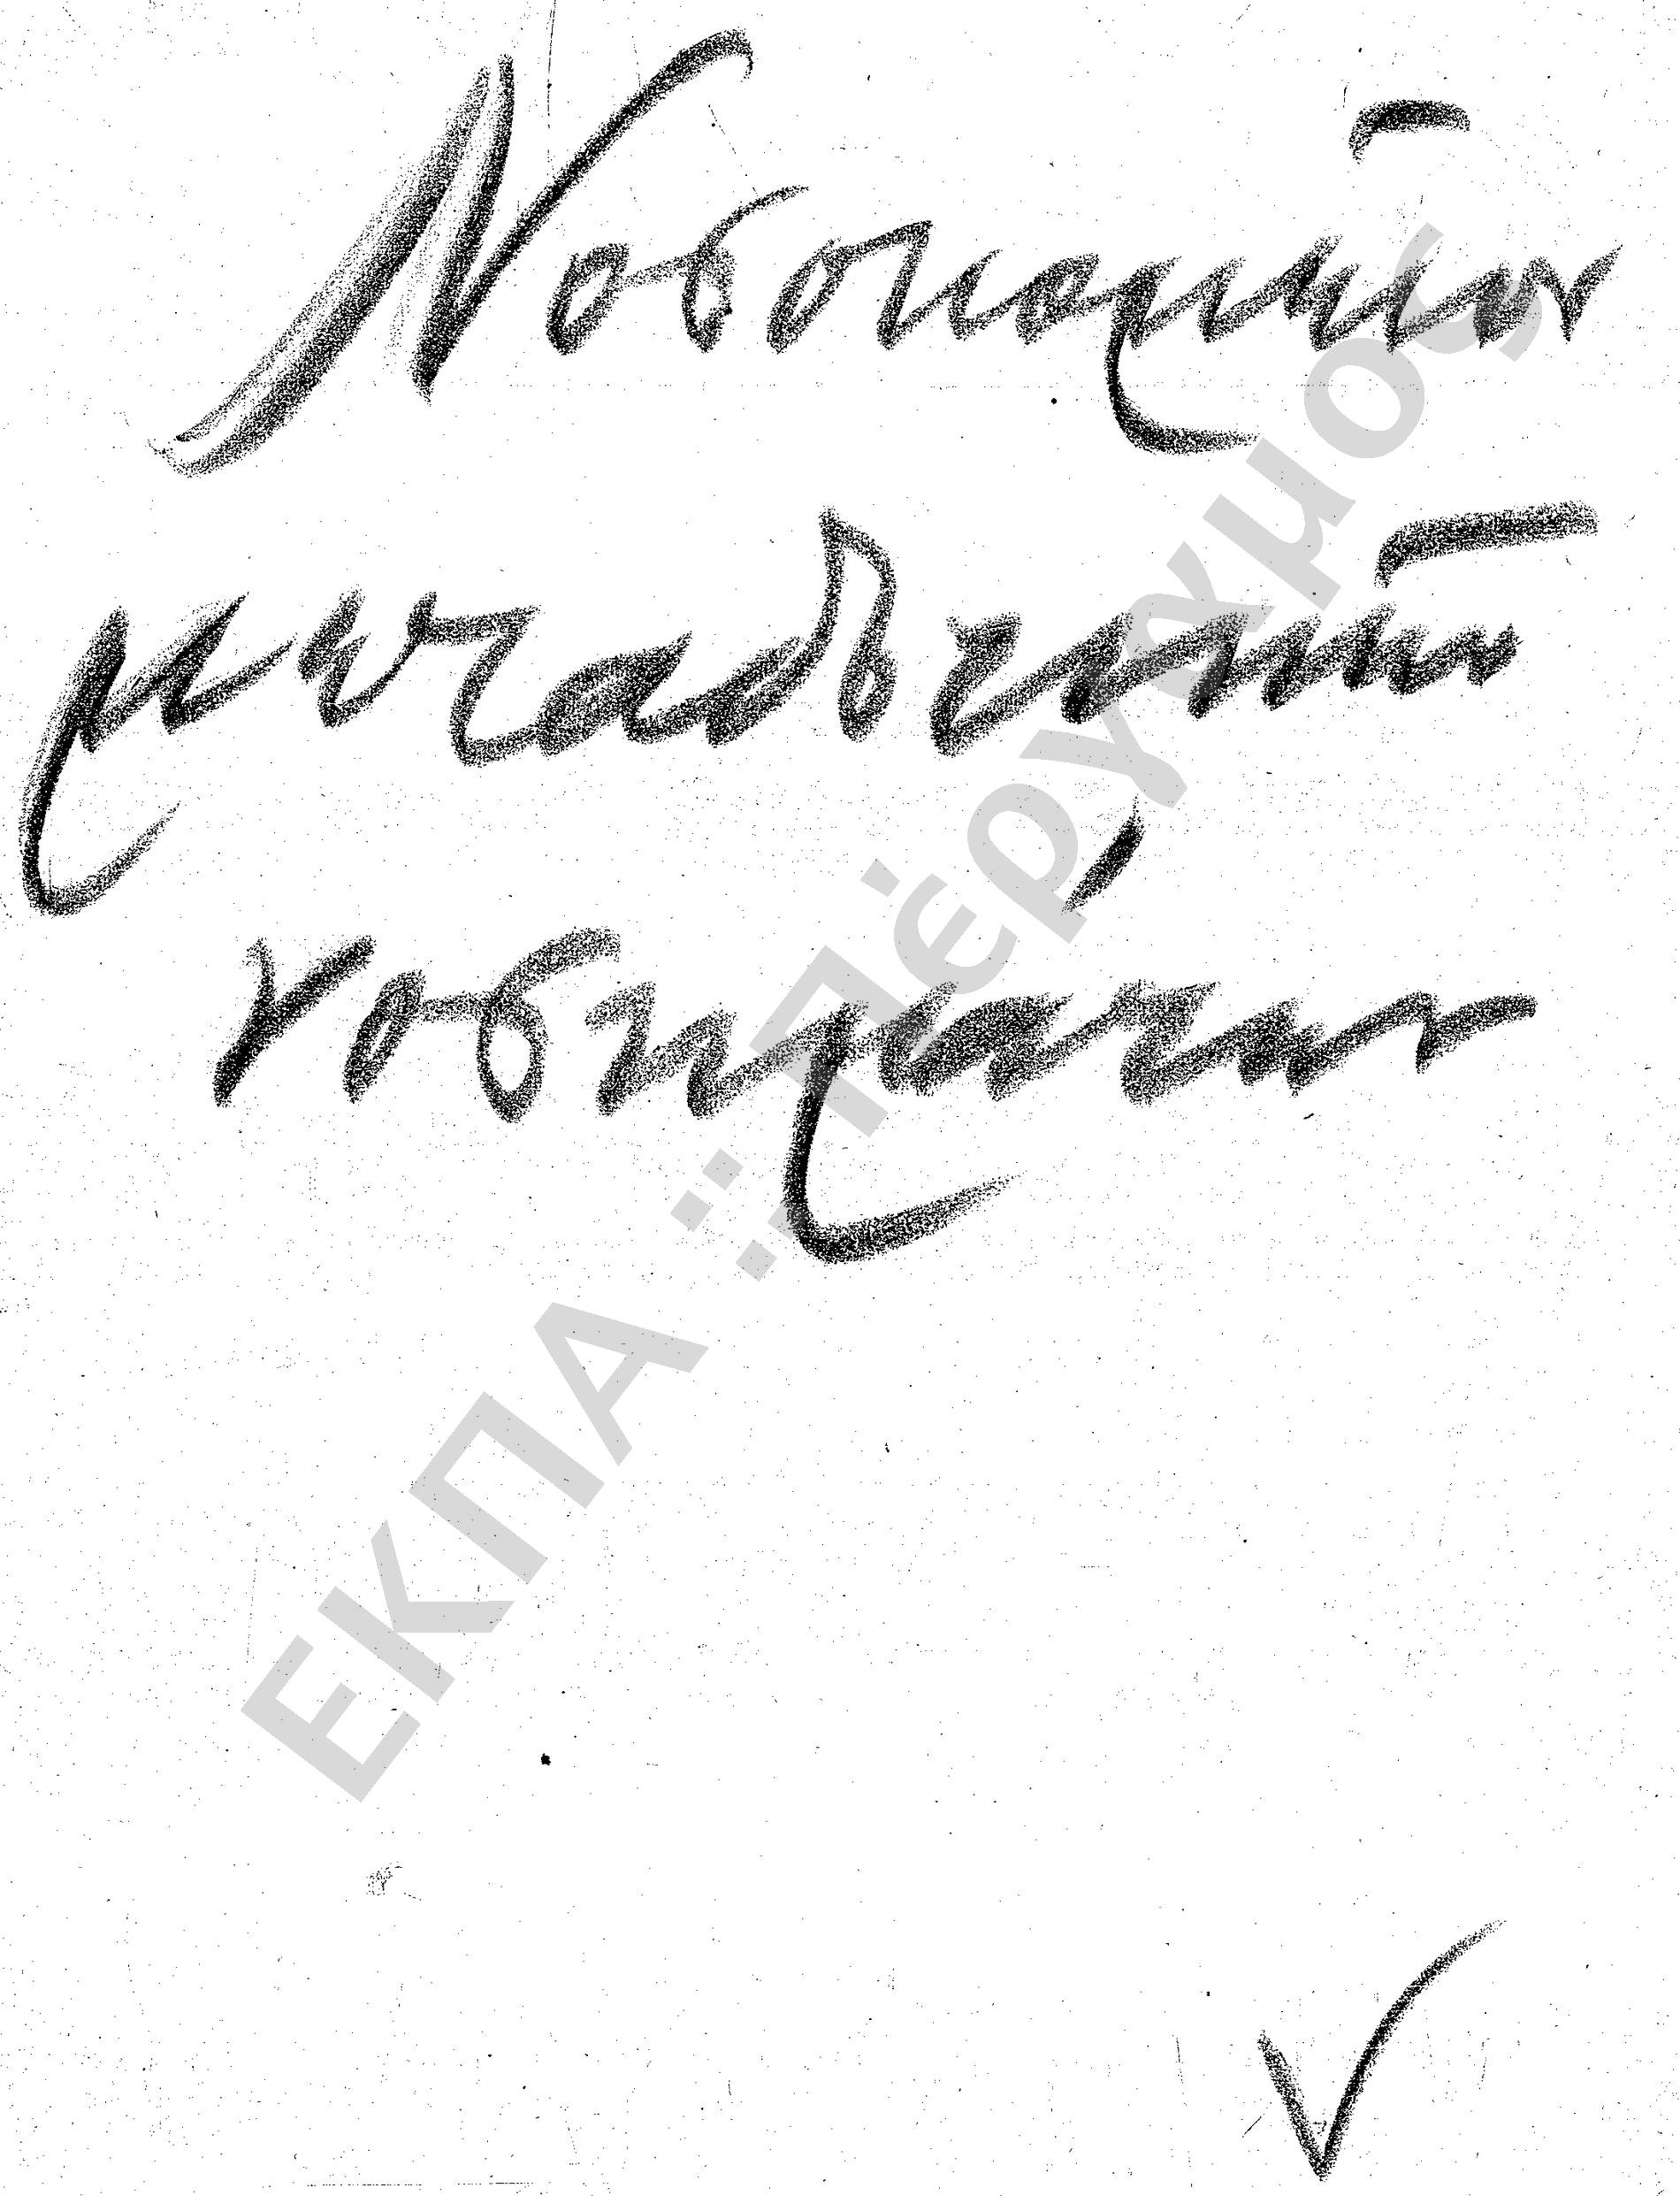 Νοσοκομεῖον
μεταδοτικῶν
νοσημάτων
ΕΚΠΑ :: Πέργαμος